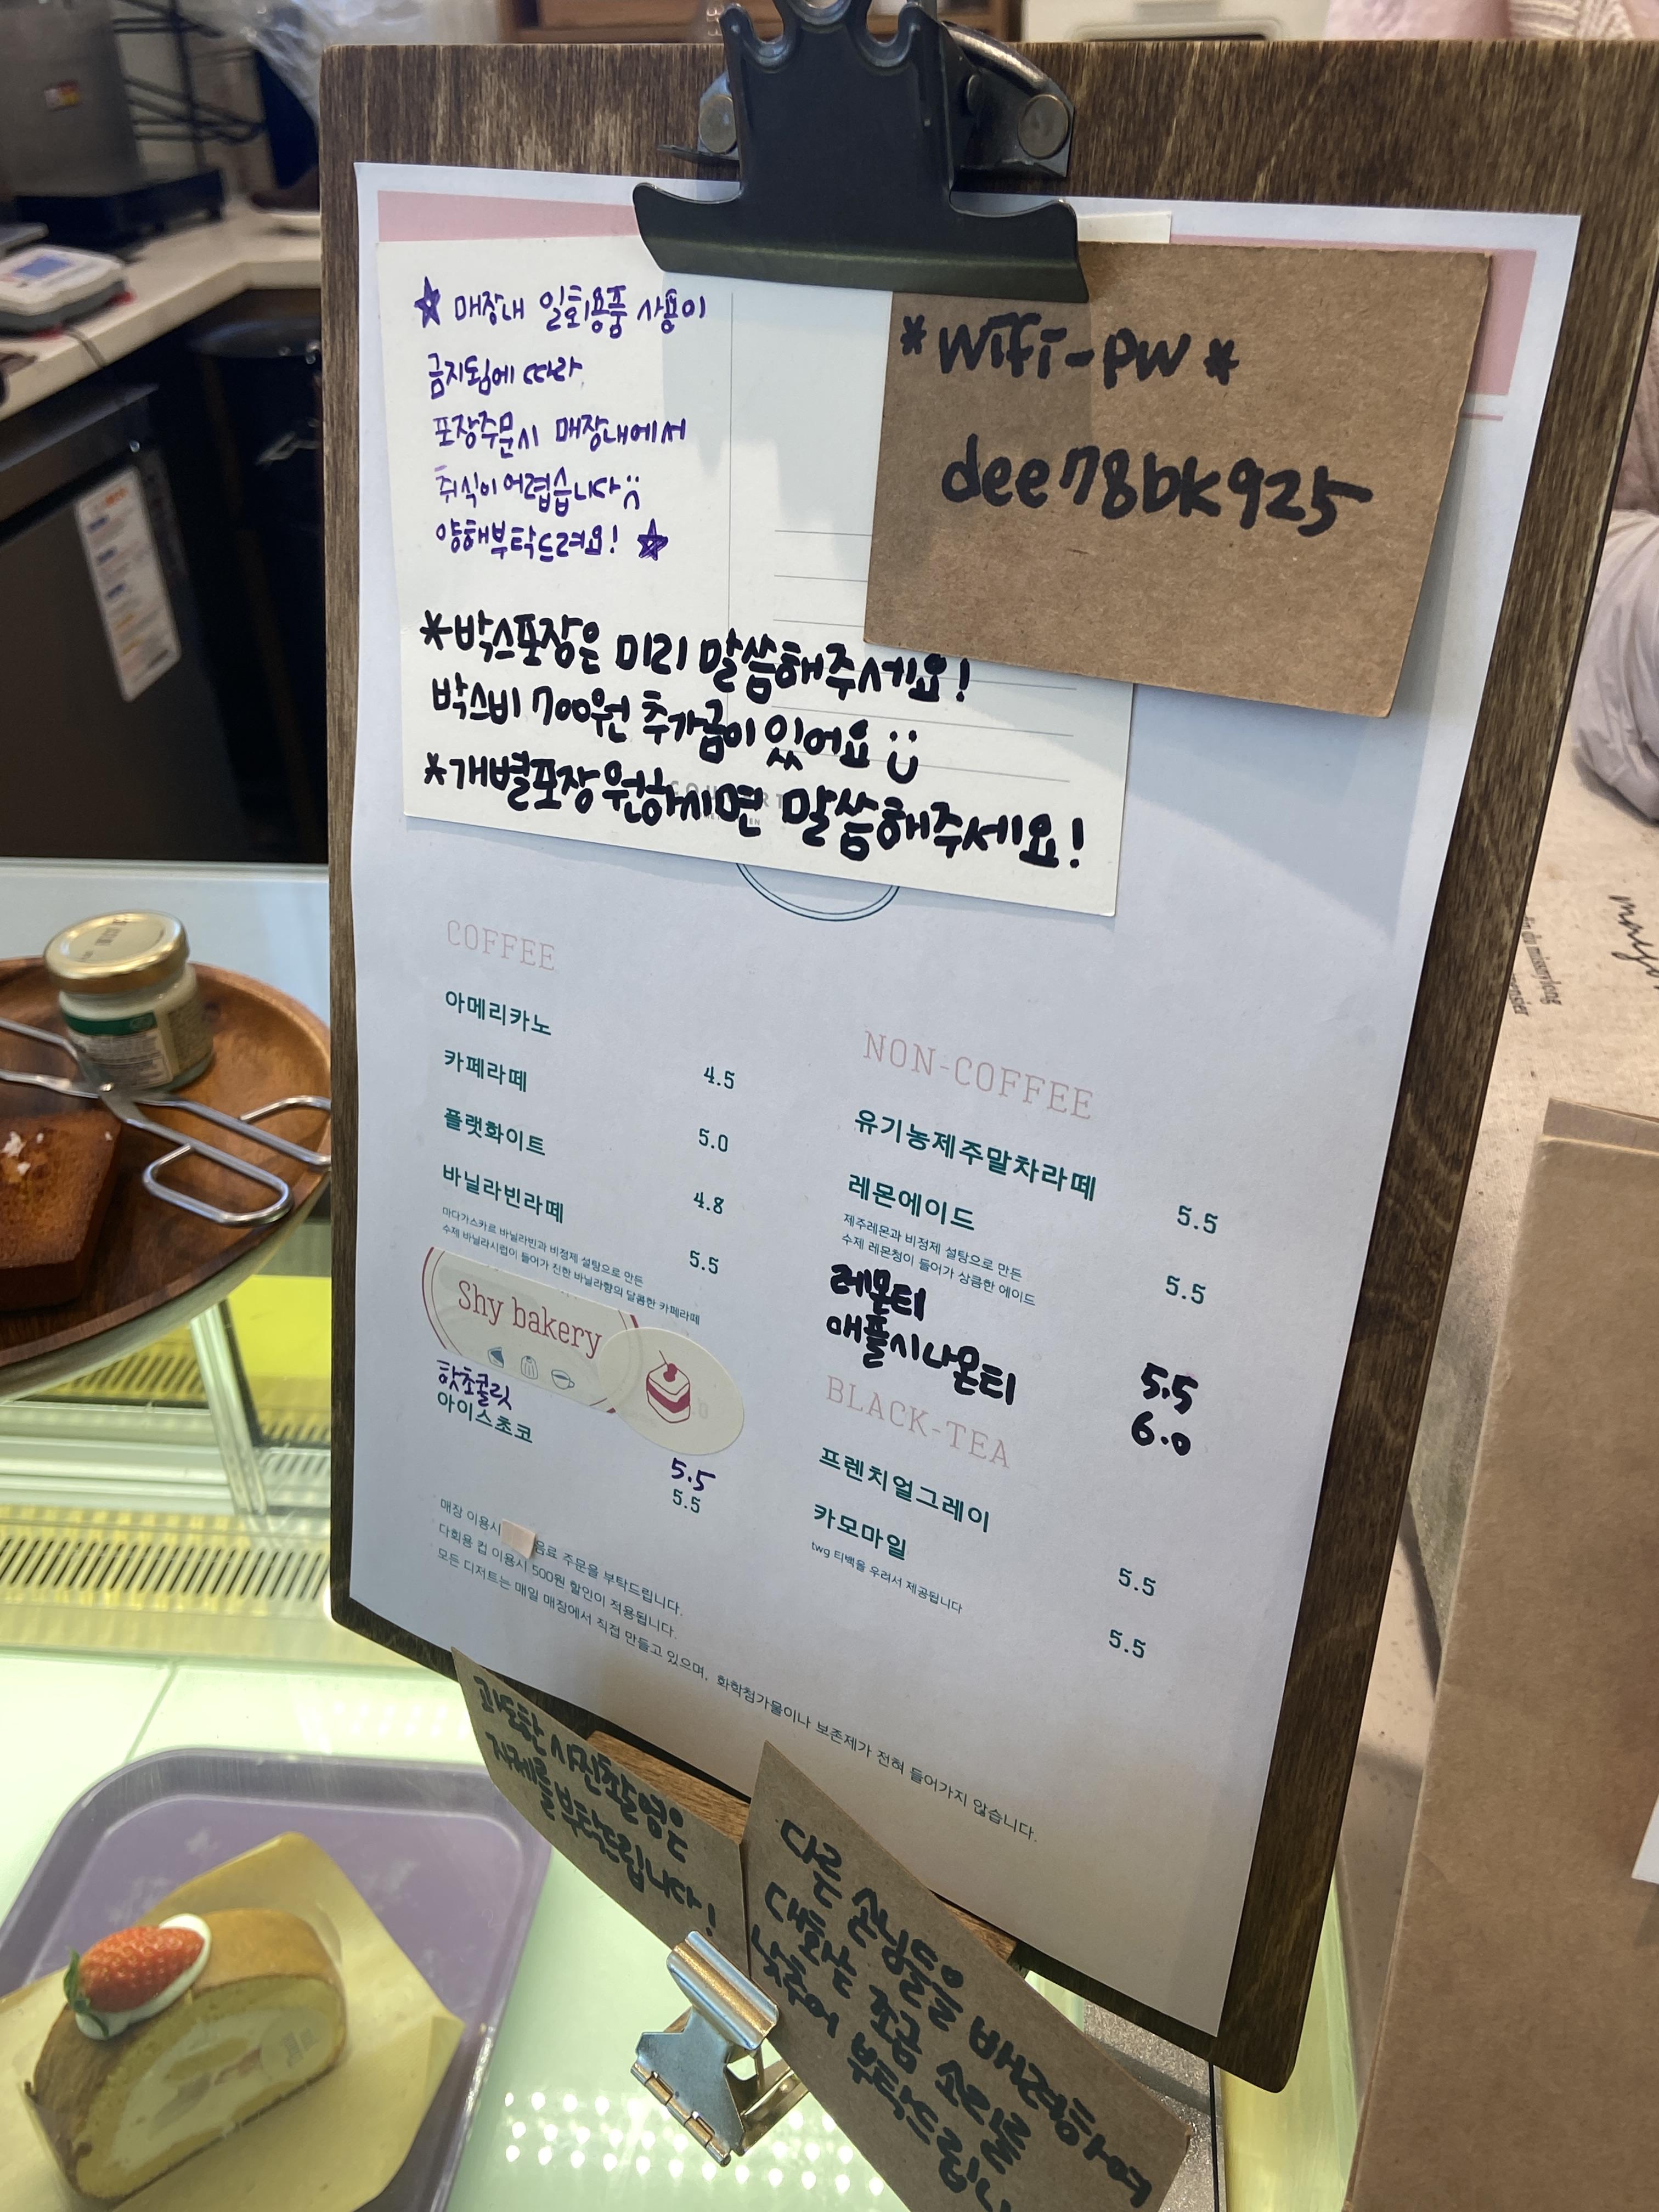 ☆ 매장내 일회용품 사용이
금지됨에 따라
포장주문시 매장내에서
취식이 어렵습니다
양해부탁드려요! ☆
*박스포장은 미리 말씀해주세요!
박스비 700원 추가금이 있어요
*개별포장 원하시면 말씀해주세요!
*Wifi-PW*
dee78bk925
COFFEE
아메리카노 4.5
카페라떼 5.0
플랫화이트 4.8
바닐라빈라떼 5.5
마다가스카르 바닐라빈과 비정제 설탕으로 만든
수제 바닐라시럽이 들어가 진한 바닐라향의 달콤한 카페라떼
Shy bakery
핫초콜릿 5.5
아이스초코 5.5
NON-COFFEE
유기농제주말차라떼 5.5
레몬에이드 5.5
제주레몬과 비정제 설탕으로 만든
수제 레몬청이 들어가 상큼한 에이드
레몬티 5.5
애플시나몬티 6.0
BLACK-TEA
프렌치얼그레이 5.5
카모마일 5.5
twg 티백을 우려서 제공됩니다
매장 이용시 음료 주문을 부탁드립니다.
다회용 컵 이용시 500원 할인이 적용됩니다.
모든 디저트는 매일 매장에서 직접 만들고 있으며, 화학첨가물이나 보존제가 전혀 들어가지 않습니다.
과도한 사진촬영은
자제를 부탁드립니다!
다른 손님들을 배려하여
대화는 조금 소리를
낮추어 부탁드립니